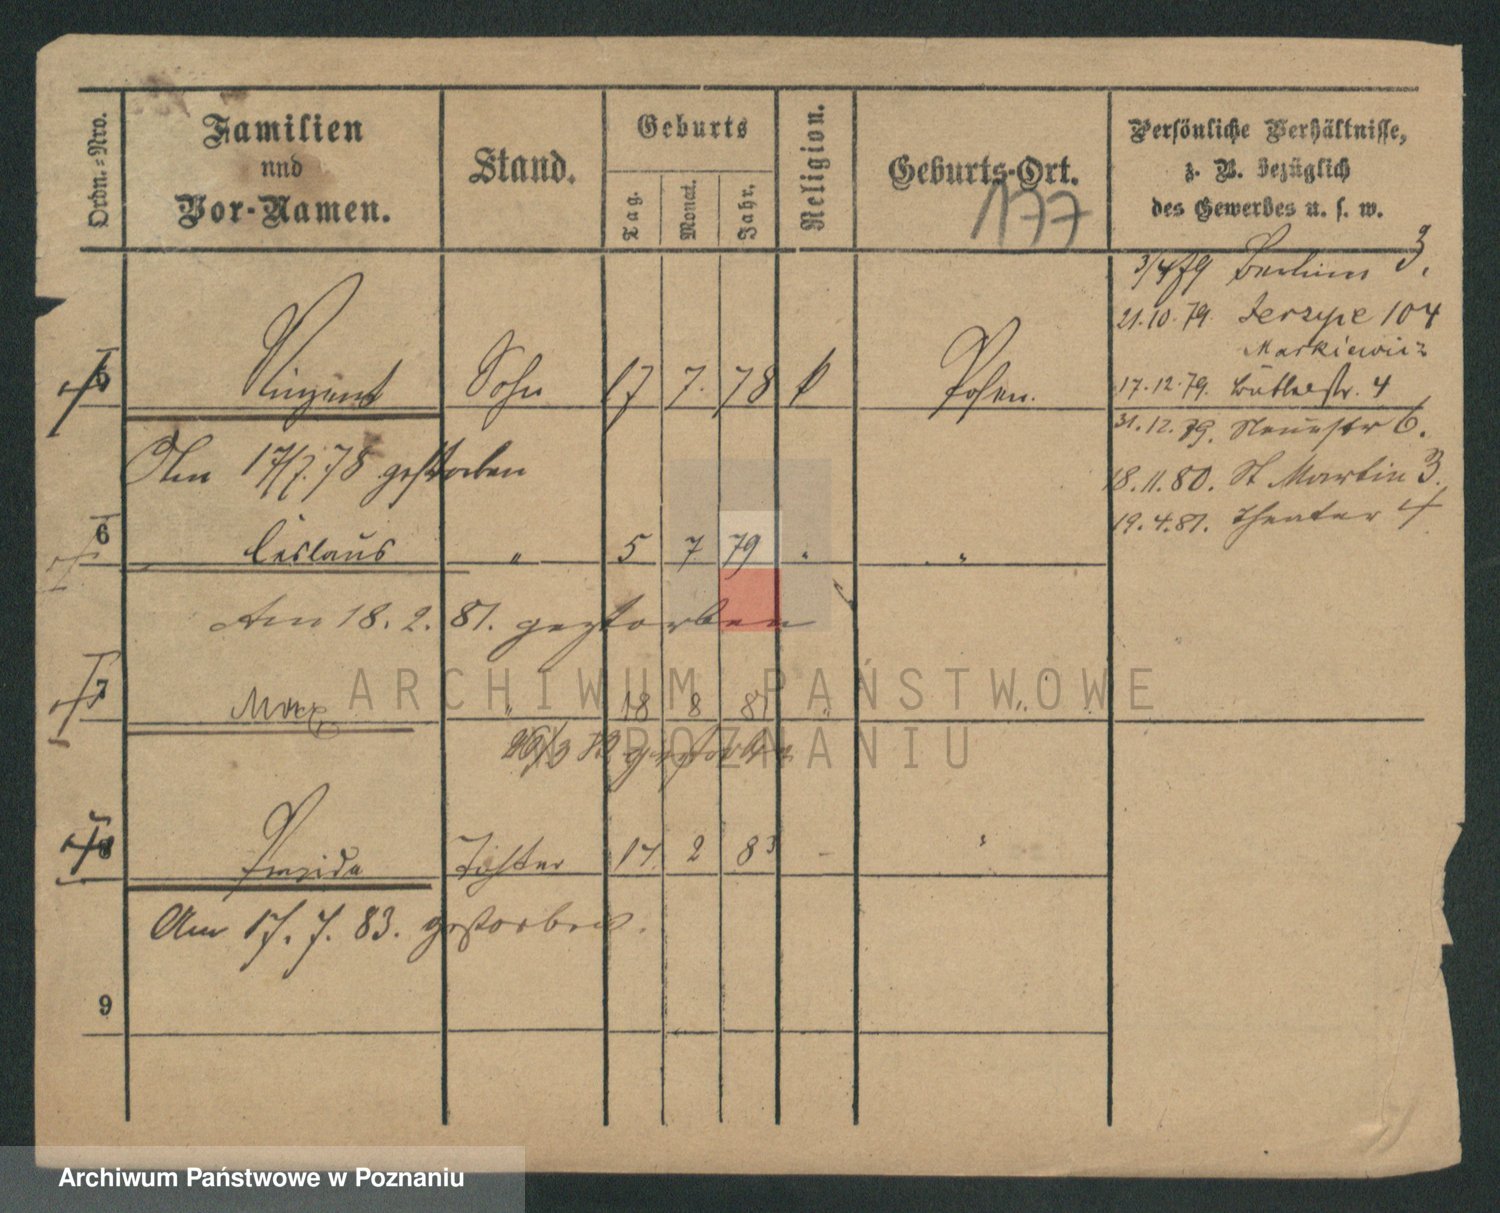 Ordn.-Nro.
Familien
und
Vor-Namen.
Stand.
Geburts
Tag.
Monat.
Jahr.
Religion.
Geburts-Ort.
177
Persönliche Verhältnisse,
z. B. bezüglich
des Gewerbes u. s. w.
3/4 79 Berliner 3.
21.10.79. Jerzyce 104
Markiewicz
17.12.79. Büttelstr. 4
31.12.79. Neuestr 6.
18.11.80. St Martin 3.
19.4.81. Theater 4
5 Vinzent Sohn 17 7. 78 k Posen.
Am 17/7.78 gestorben
6 Ceslaus " 5 7 79 " "
Am 18.2.81. gestorben
7 Max " 18 8 81 " "
gestorben
8 Tochter 17 2 83 - "
Am 17.7.83. gestorben.
9
ARCHIWUM PAŃSTWOWE
W POZNANIU
Archiwum Państwowe w Poznaniu